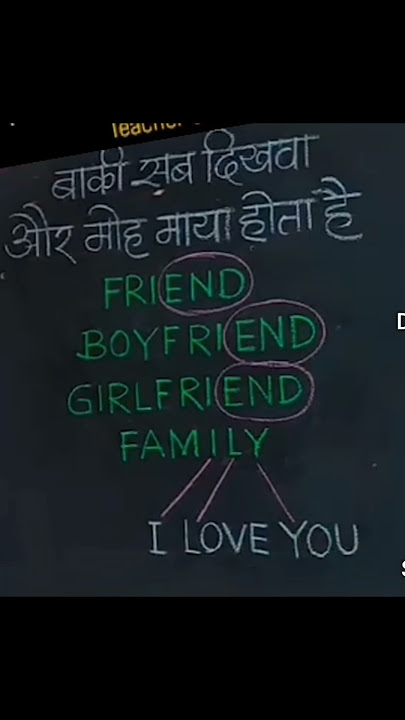 Teacher
बाकी सब दिखवा
और मोह माया होता है
FRIEND
BOYFRIEND
GIRLFRIEND
FAMILY
I LOVE YOU